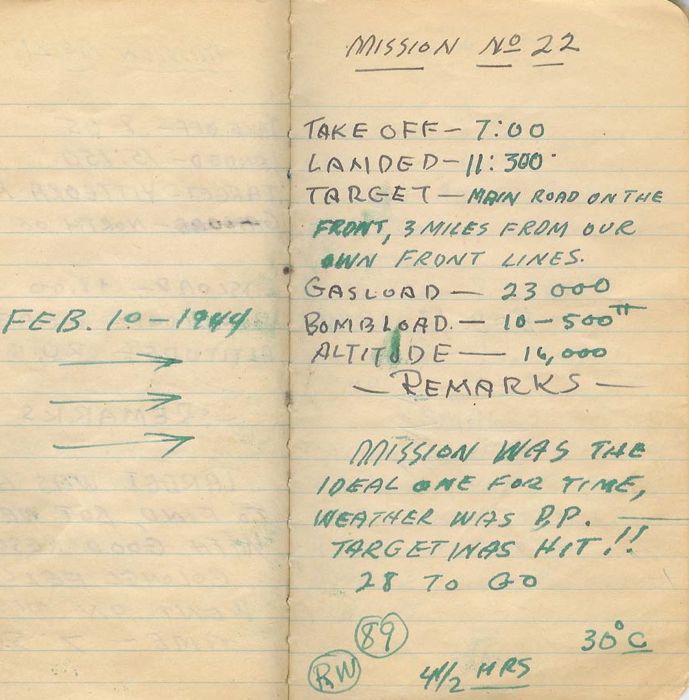 FEB. 10 - 1944
MISSION No 22
TAKE OFF - 7:00
LANDED - 11:300
TARGET - MAIN ROAD ON THE
FRONT, 3 MILES FROM OUR
OWN FRONT LINES.
GASLOAD - 23000
BOMBLOAD. - 10-500
ALTITUDE - 16,000
- REMARKS -
MISSION WAS THE
IDEAL ONE FOR TIME,
WEATHER WAS
TARGET WAS HIT!!
28 TO GO
89
30°C
RW
4 1/2 HRS